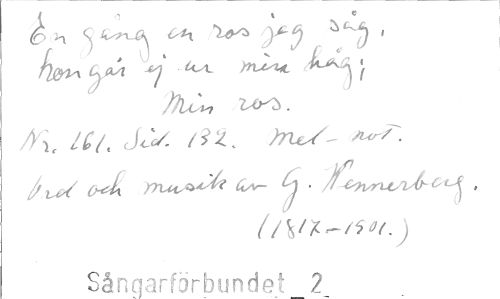 En gång en ros jag såg,
hon går ej ur mina håg;
Min ros.
Nr. 161. Sid. 132. Mel-not.
Ord och musik av G. Wennerberg.
(1817-1901.)
Sångarförbundet 2